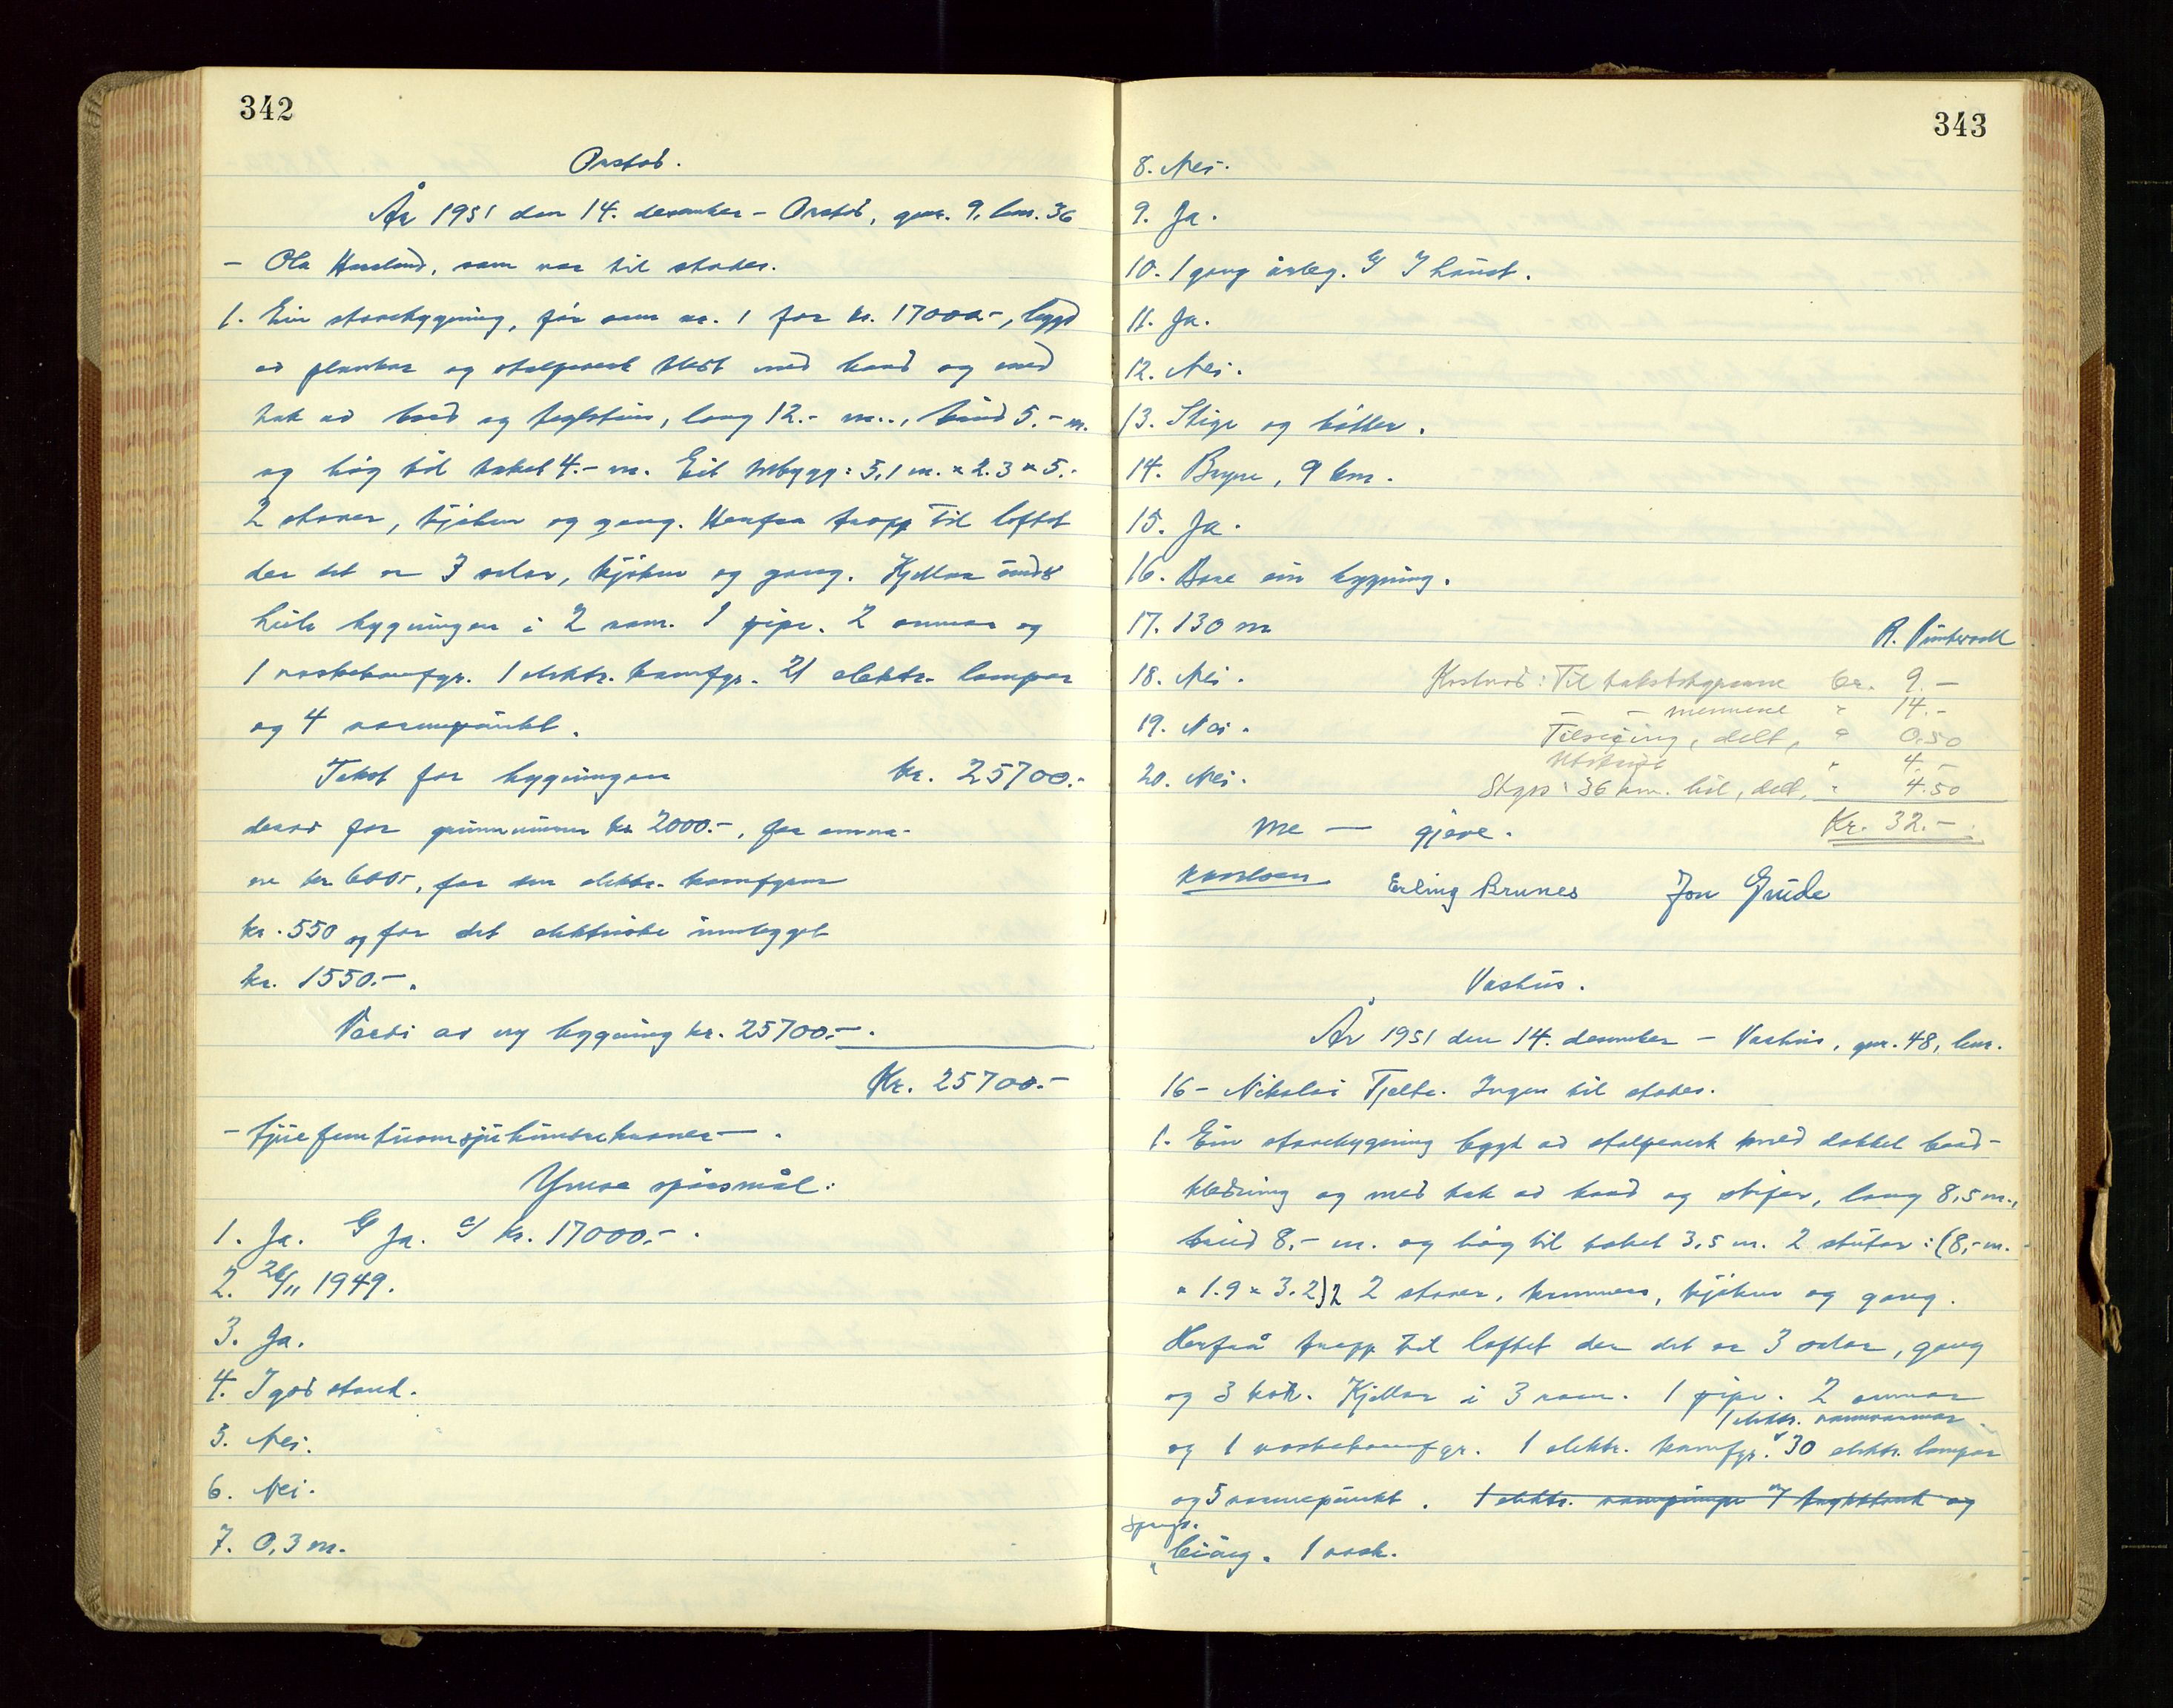 342
Orstad.
År 1951 den 14. desember - Orstad, gnr. 9, bnr. 36
- Ola Haraland, som var til stades.
1. Ein stovebygning, før som nr. 1 for kr. 17000.-, bygd
av plankar og stolpeverk klædt med bord og med
tak av bord og teglstein, lang 12.- m., breid 5.- m.
og høg til taket 4.- m. Eit utbygg: 5,1 m. x 2.3 x 5.-
2 stover, kjøken og gang. Herfraa tropp til loftet
der det er 3 soler, kjøken og gang. Kjellar under
heile bygningen i 2 rom. 1 pipe. 2 omnar og
1 vaskekomfyr. 1 elektr. komfyr. 21 elektr. lampor
og 4 varmepunkt.
Takst for bygningen kr. 25700.-
derav for grunnmuren kr 2000.-, for omna-
ne kr 600.-, for den elektr. komfyren
kr. 550 og for det elektriske innlegget
kr. 1550.-.
Verdi av ny bygning kr. 25700.-.
Kr. 25700.-
- tjuefemtusensjuhundrekroner - .
Ymse spørsmål:
1. Ja. b/ Ja. c/ kr. 17000.-.
2. 26/11 1949.
3. Ja.
4. I god stand.
5. Nei.
6. Nei.
7. 0,3 m.
343
8. Nei.
9. Ja.
10. 1 gong årleg. b/ I haust.
11. Ja.
12. Nei.
13. Stige og bøtter.
14. Bryne, 9 km.
15. Ja.
16. Bare ein bygning.
17. 130 m
R.
18. Nei. Kostnad: Til takststyrarane kr. 9.-
- - mennene " 14.-
19. Nei. Tilseiing, delt, " 0.50
Utskrift " 4.-
20. Nei. Skyss: 36 km. bil, delt, " 4.50
Me — gjeve. Kr. 32.-
Karlsen Erling Brunes Jon Grude
Vashus.
År 1951 den 14. desember - Vashus, gnr. 48, bnr.
16 - Nikolai Tjelta. Ingen til stades.
1. Ein stovebygning bygt av stolpeverk med dobbel bord-
kledning og med tak av bord og skifer, lang 8,5 m.,
breid 8,- m. og høg til taket 3,5 m. 2 stutar: (8,- m.
x 1.9 x 3.2)2 2 stover, kammers, kjøken og gang.
Herfrå tropp til loftet der det er 3 soler, gang
og 3 kott. Kjellar i 3 rom. 1 pipe. 2 omnar
1 elektr. vannvarmar.
og 1 vaskekomfyr. 1 elektr. komfyr. 30 elektr. lampor
og 5 varmepunkt. 1 elektr. vannpumpe m/ trykktank og
1 vask.